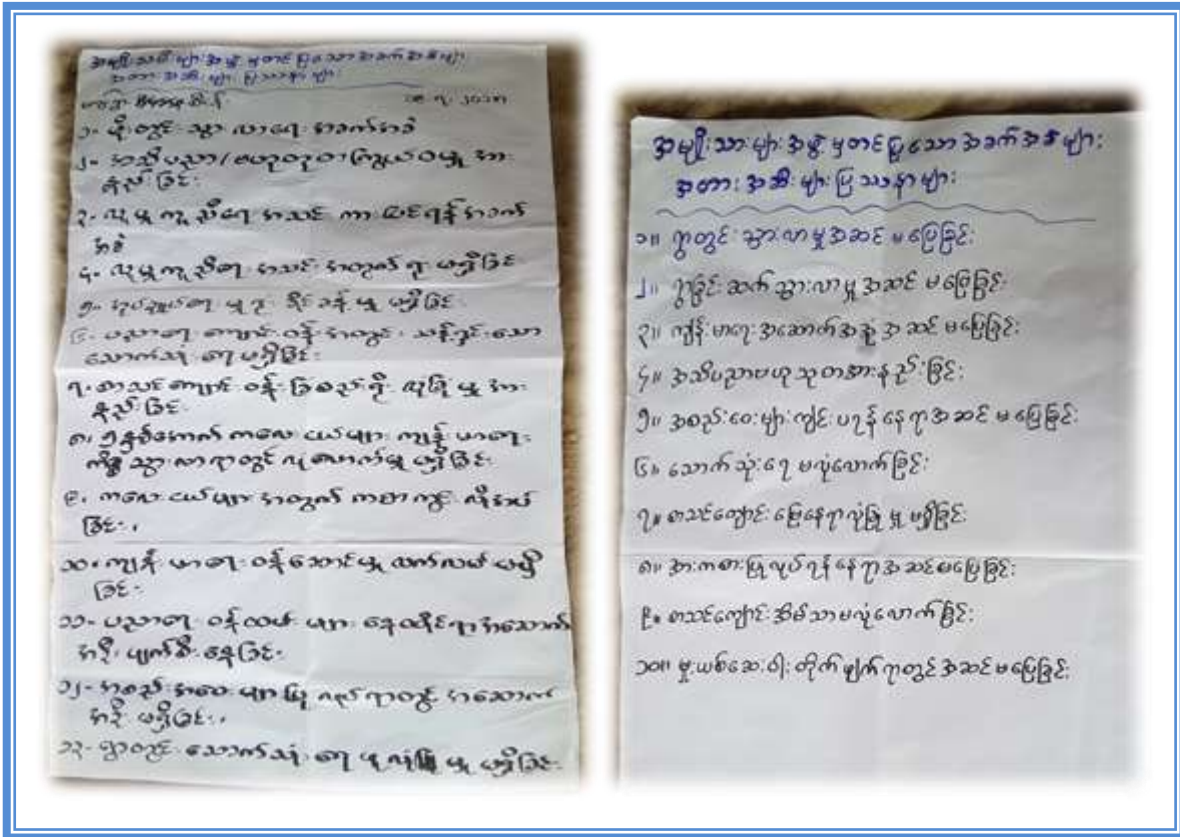 အမျိုးသမီးများအဖွဲ့မှတင်ပြသောအခက်အခဲများ
အတားအဆီးများ ပြဿနာများ
၁- မိုးတွင်းသွားလာရေးအခက်အခဲ
၂- အသိပညာ/ဗဟုသုတကြွယ်ဝမှုအား
နည်းခြင်း
၃- လူမှုကူညီရေးအသင်း ကားဝင်ရန်အခက်
အခဲ
၄- လူမှုကူညီရေးအသင်းအတွက် ရုံးမရှိခြင်း
၅- အုပ်ချုပ်ရေးမှူးရုံးခန်းမှု မရှိခြင်း
၆- ပညာရေးကျောင်းဝန်းအတွင်း သန့်ရှင်းသော
သောက်သုံးရေမရှိခြင်း
၇- စာသင်ကျောင်းဝန်းခြံစည်းရိုးလုံခြုံမှုအား
နည်းခြင်း
၈- ၅နှစ်အောက်ကလေးငယ်များကျန်းမာရေး
ကိစ္စသွားလာရာတွင်လုံလောက်မှုမရှိခြင်း
၉- ကလေးငယ်များအတွက်ကစားကွင်းလိုအပ်
ခြင်း
၁၀- ကျန်းမာရေးဝန်ဆောင်မှုလက်လှမ်းမမှီ
ခြင်း
၁၁- ပညာရေးဝန်ထမ်းများနေထိုင်ရာအဆောက်
အဦးပျက်စီးနေခြင်း
၁၂- အစည်းအဝေးများပြုလုပ်ရာတွင်အဆောက်
အဦးမရှိခြင်း
၁၃- ရွာတွင်းသောက်သုံးရေဖူလုံမှုမရှိခြင်း
အမျိုးသားများအဖွဲ့မှတင်ပြသောအခက်အခဲများ
အတားအဆီးများပြဿနာများ
၁။ ရွာတွင်းသွားလာမှုအဆင်မပြေခြင်း
၂။ ရွာခြင်းဆက်သွားလာမှုအဆင်မပြေခြင်း
၃။ ကျန်းမာရေးအဆောက်အအုံအဆင်မပြေခြင်း
၄။ အသိပညာဗဟုသုတအားနည်းခြင်း
၅။ အစည်းဝေးများကျင်းပရန်နေရာအဆင်မပြေခြင်း
၆။ သောက်သုံးရေမလုံလောက်ခြင်း
၇။ စာသင်ကျောင်းမြေနေရာလုံခြုံမှုမရှိခြင်း
၈။ အားကစားပြုလုပ်ရန်နေရာအဆင်မပြေခြင်း
၉။ စာသင်ကျောင်းအိမ်သာမလုံလောက်ခြင်း
၁၀။ မူးယစ်ဆေးဝါးတိုက်ဖျက်ရာတွင်အဆင်မပြေခြင်း